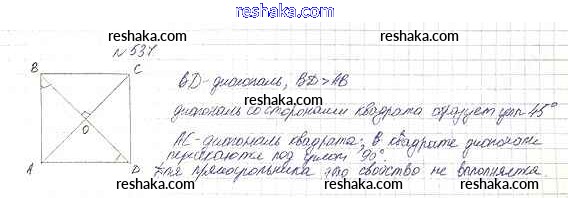 gdz.reshaka.com
reshaka.com
reshaka.com
reshaka.com
№ 537
B
C
BD-диагональ, BD > AB
диагональ со сторонами квадрата образует угол 45°
reshaka.com
reshaka.com
reshaka.com
O
AC-диагональ квадрата; в квадрате диагонали
пересекаются под углом 90°
A
D
Для прямоугольника это свойство не выполняется.
reshaka.com
reshaka.com
reshaka.com